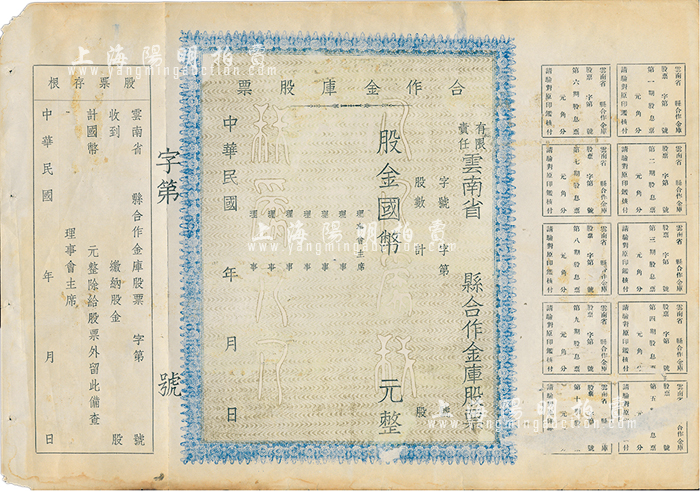 上海陽明拍賣
yangmingauction.com
合作金庫股票
有限責任雲南省　縣合作金庫股票
字號　字第　號
股數　計　股
股金國幣　元整
理事會主席
理事
理事
理事
理事
理事
理事
中華民國　年　月　日
字第　號
股票存根
雲南省　縣合作金庫股票　字第　號
收到　繳納股金　股
計國幣　元整除給股票外留此備查
理事會主席
中華民國　年　月　日
雲南省　縣合作金庫
股票　字第　號
第一期股息票
元　角　分
請驗對原印鑑核付
雲南省　縣合作金庫
股票　字第　號
第二期股息票
元　角　分
請驗對原印鑑核付
雲南省　縣合作金庫
股票　字第　號
第三期股息票
元　角　分
請驗對原印鑑核付
雲南省　縣合作金庫
股票　字第　號
第四期股息票
元　角　分
請驗對原印鑑核付
雲南省　合作金庫
股票　字第　號
第五　息票
元　角　分
請驗對原印鑑核付
雲南省　縣合作金庫
股票　字第　號
第六期股息票
元　角　分
請驗對原印鑑核付
雲南省　縣合作金庫
股票　字第　號
第七期股息票
元　角　分
請驗對原印鑑核付
雲南省　縣合作金庫
股票　字第　號
第八期股息票
元　角　分
請驗對原印鑑核付
雲南省　縣合作金庫
股票　字第　號
第九期股息票
元　角　分
請驗對原印鑑核付
雲南省　縣合作金庫
股票　字第　號
第十
請驗對原印鑑核付